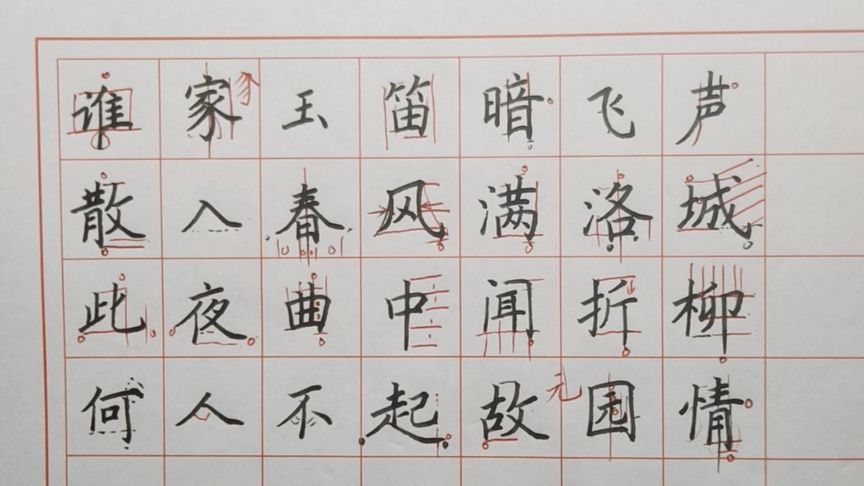 谁家玉笛暗飞声
散入春风满洛城
此夜曲中闻折柳
何人不起故园情
元